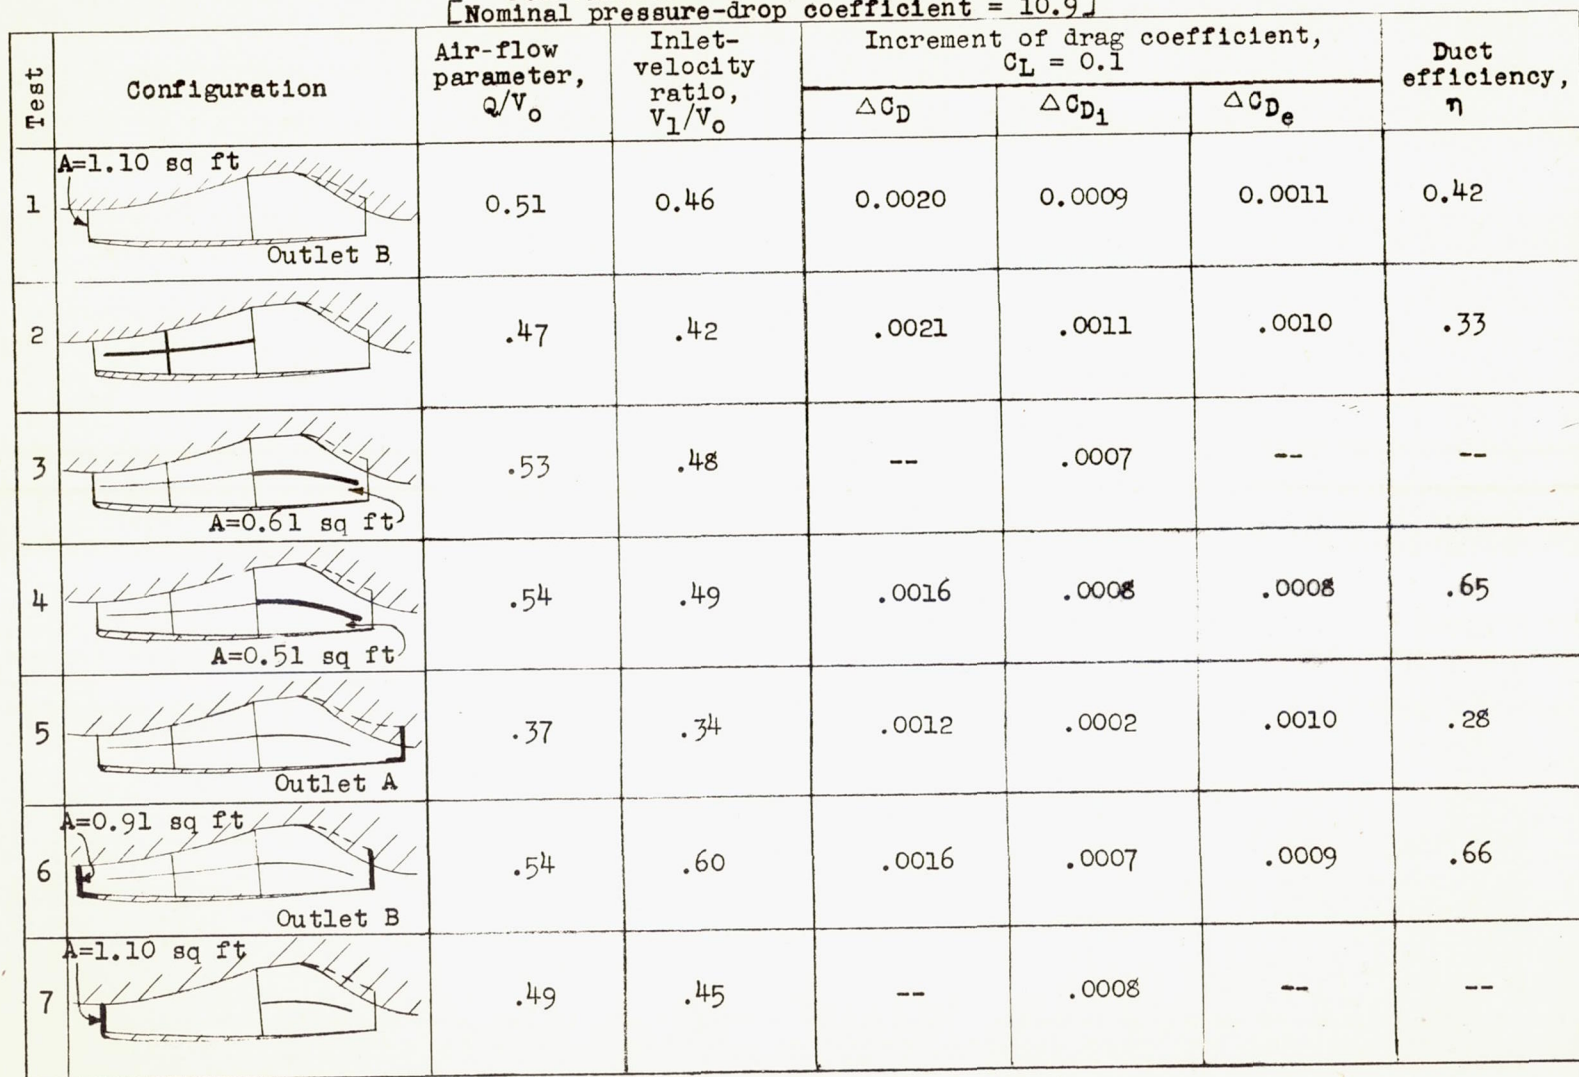 [Nominal pressure-drop coefficient = 10.9]
Test
Configuration
Air-flow parameter, Q/Vo
Inlet-velocity ratio, V1/Vo
Increment of drag coefficient, CL = 0.1
△CD
△CDi
△CDe
Duct efficiency, η
1
A=1.10 sq ft
Outlet B
0.51
0.46
0.0020
0.0009
0.0011
0.42
2
.47
.42
.0021
.0011
.0010
.33
3
A=0.61 sq ft
.53
.48
--
.0007
--
--
4
A=0.51 sq ft
.54
.49
.0016
.0008
.0008
.65
5
Outlet A
.37
.34
.0012
.0002
.0010
.28
6
A=0.91 sq ft
Outlet B
.54
.60
.0016
.0007
.0009
.66
7
A=1.10 sq ft
.49
.45
--
.0008
--
--